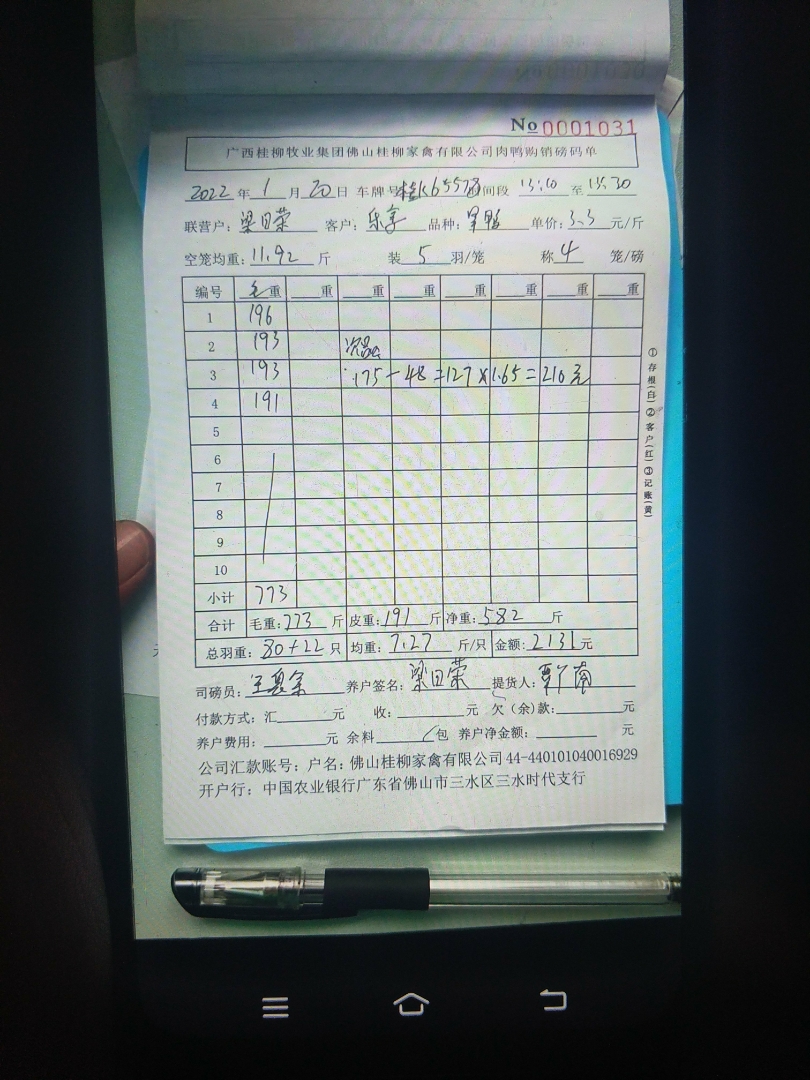 No 0001031
广西桂柳牧业集团佛山桂柳家禽有限公司肉鸭购销磅码单
2022年1月20日 车牌号 间段 13:10至13:30
联营户:梁日荣 客户:乐享 品种: 单价:3.3元/斤
空笼均重:11.92斤 装5羽/笼 称4笼/磅
编号 毛重 重 重 重 重 重 重 重
1 196
2 193 次品
3 193 175-48=127×1.65=210元
4 191
5
6
7
8
9
10
小计 773
合计 毛重:773斤 皮重:191斤 净重:582斤
总羽重:80+22只 均重:7.27斤/只 金额:2131元
司磅员: 养户签名:梁日荣 提货人:
付款方式:汇 元 收: 元 欠(余)款: 元
养户费用: 元 余料 包 养户净金额: 元
公司汇款账号:户名:佛山桂柳家禽有限公司44-440101040016929
开户行:中国农业银行广东省佛山市三水区三水时代支行
①存根(白)②客户(红)③记账(黄)